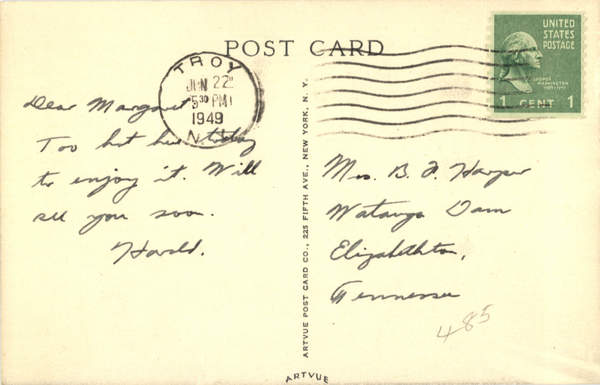 POST CARD
TROY
JUN 22
5 30 PM
1949
N.Y.
UNITED
STATES
POSTAGE
GEORGE
WASHINGTON
1 CENT 1
Dear Margaret
Too hot here today
to enjoy it. Will
see you soon.
Harold.
ARTVUE POST CARD CO., 225 FIFTH AVE., NEW YORK, N. Y.
Mrs. B. F. Harper
Watauga Dam
Elizabethton,
Tennessee
485
ARTVUE